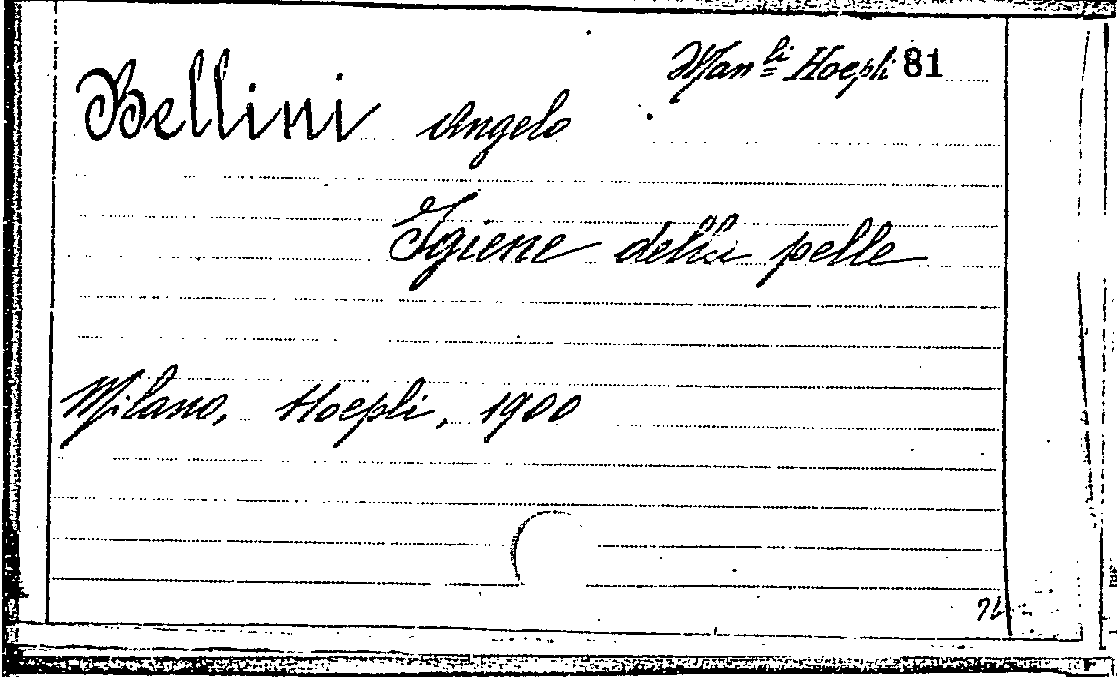 Man.li Hoepli 81
Bellini Angelo
Igiene della pelle
Milano, Hoepli, 1900